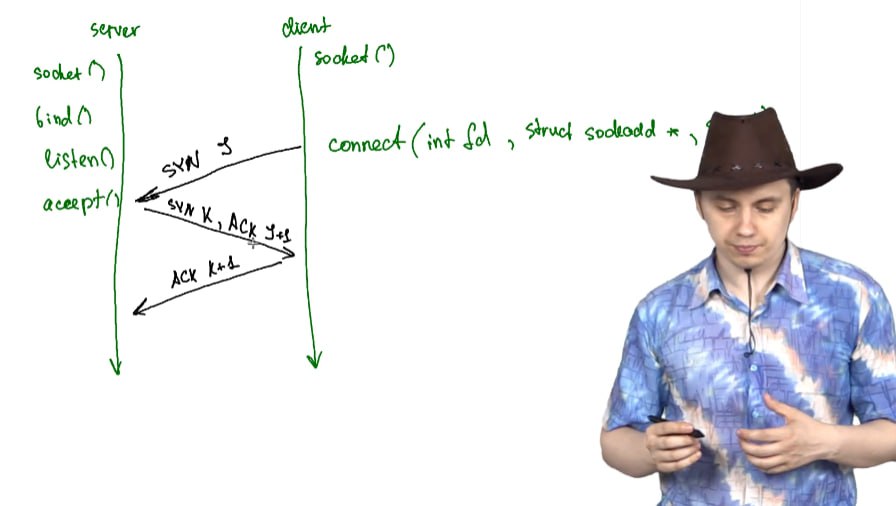 server
client
socket()
socket()
bind()
listen()
accept()
connect(int fd, struct sockadd *,
SYN J
SYN K, ACK J+1
ACK K+1